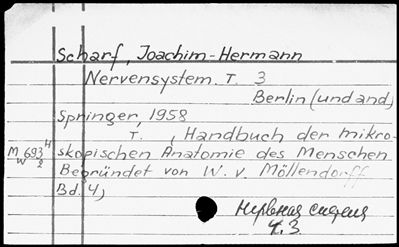 Scharf, Joachim-Hermann
Nervensystem. T. 3
Berlin (und and)
Springer, 1958
T. , Handbuch der mikro-
M 693 4
W 2
skopischen Anatomie des Menschen
Begründet von W. v. Möllendorff
Bd. 4)
Нервная система
ч. 3